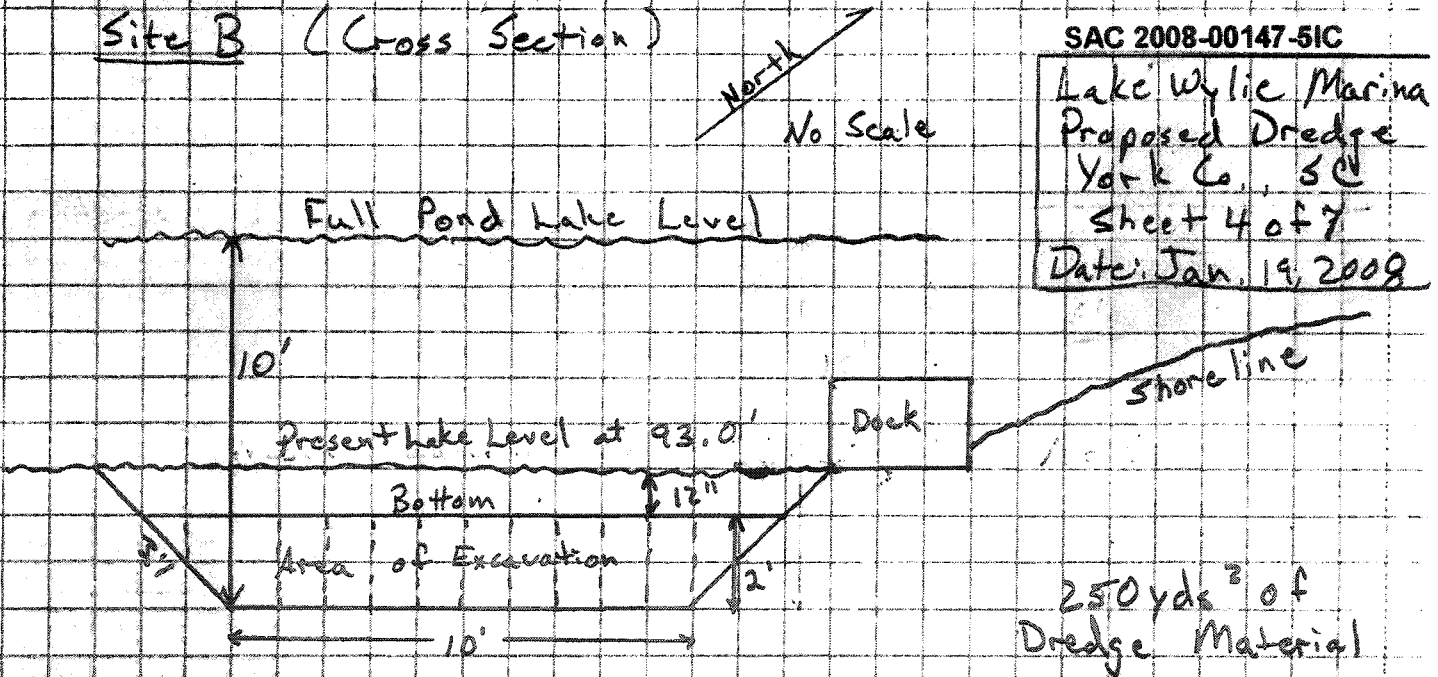 Site B (Cross Section)
North
No Scale
SAC 2008-00147-5IC
Lake Wylie Marina
Proposed Dredge
York Co., SC
Sheet 4 of 7
Date: Jan. 19, 2008
Full Pond Lake Level
10'
Shoreline
Dock
Present Lake Level at 93.0'
Bottom
12"
Area of Excavation
2'
10'
250 yds³ of
Dredge Material